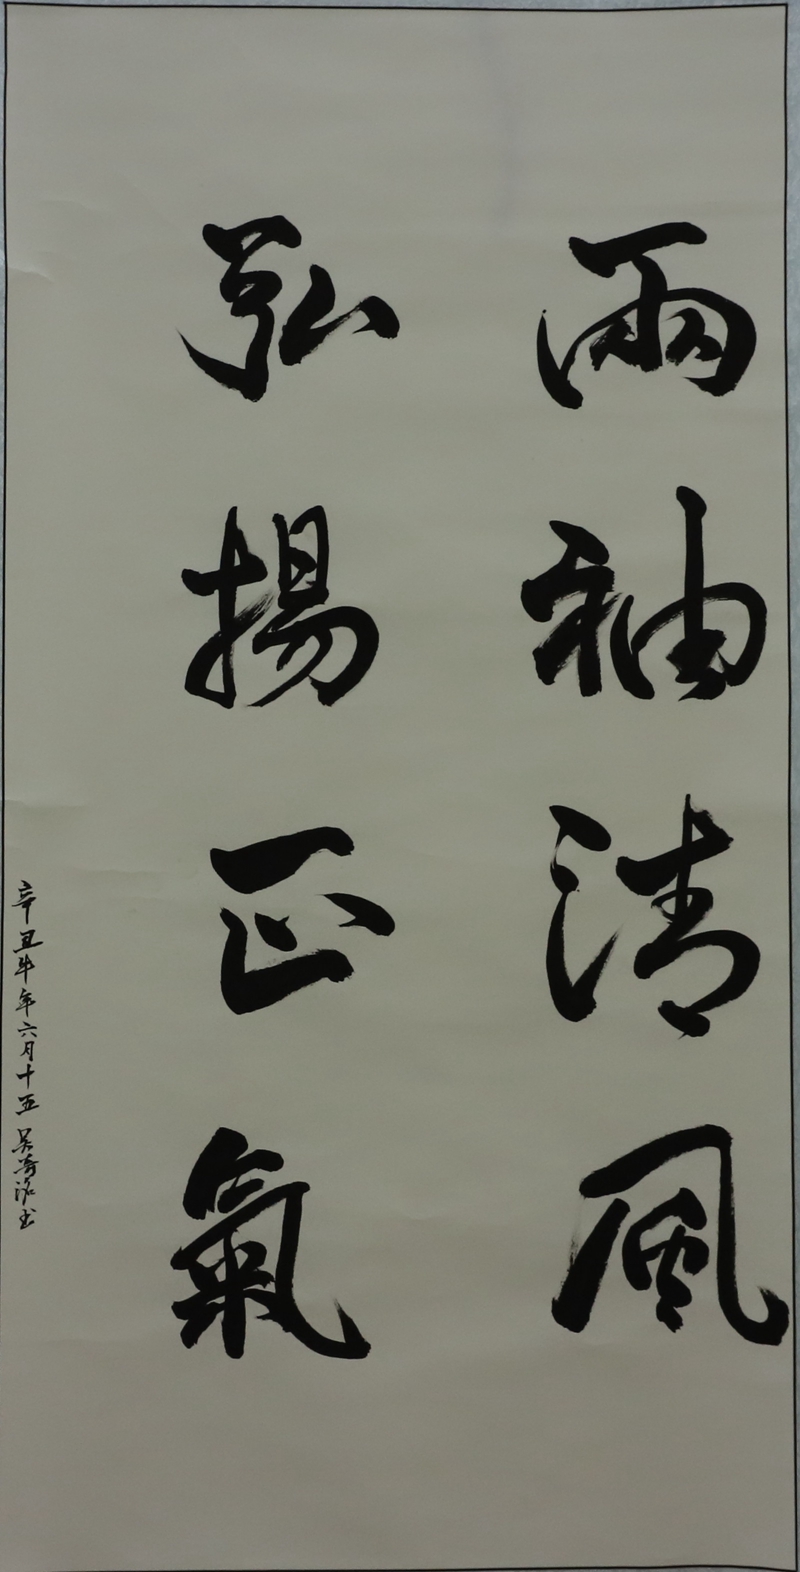 兩袖清風
弘揚正氣
辛丑牛年六月十五 吴
书